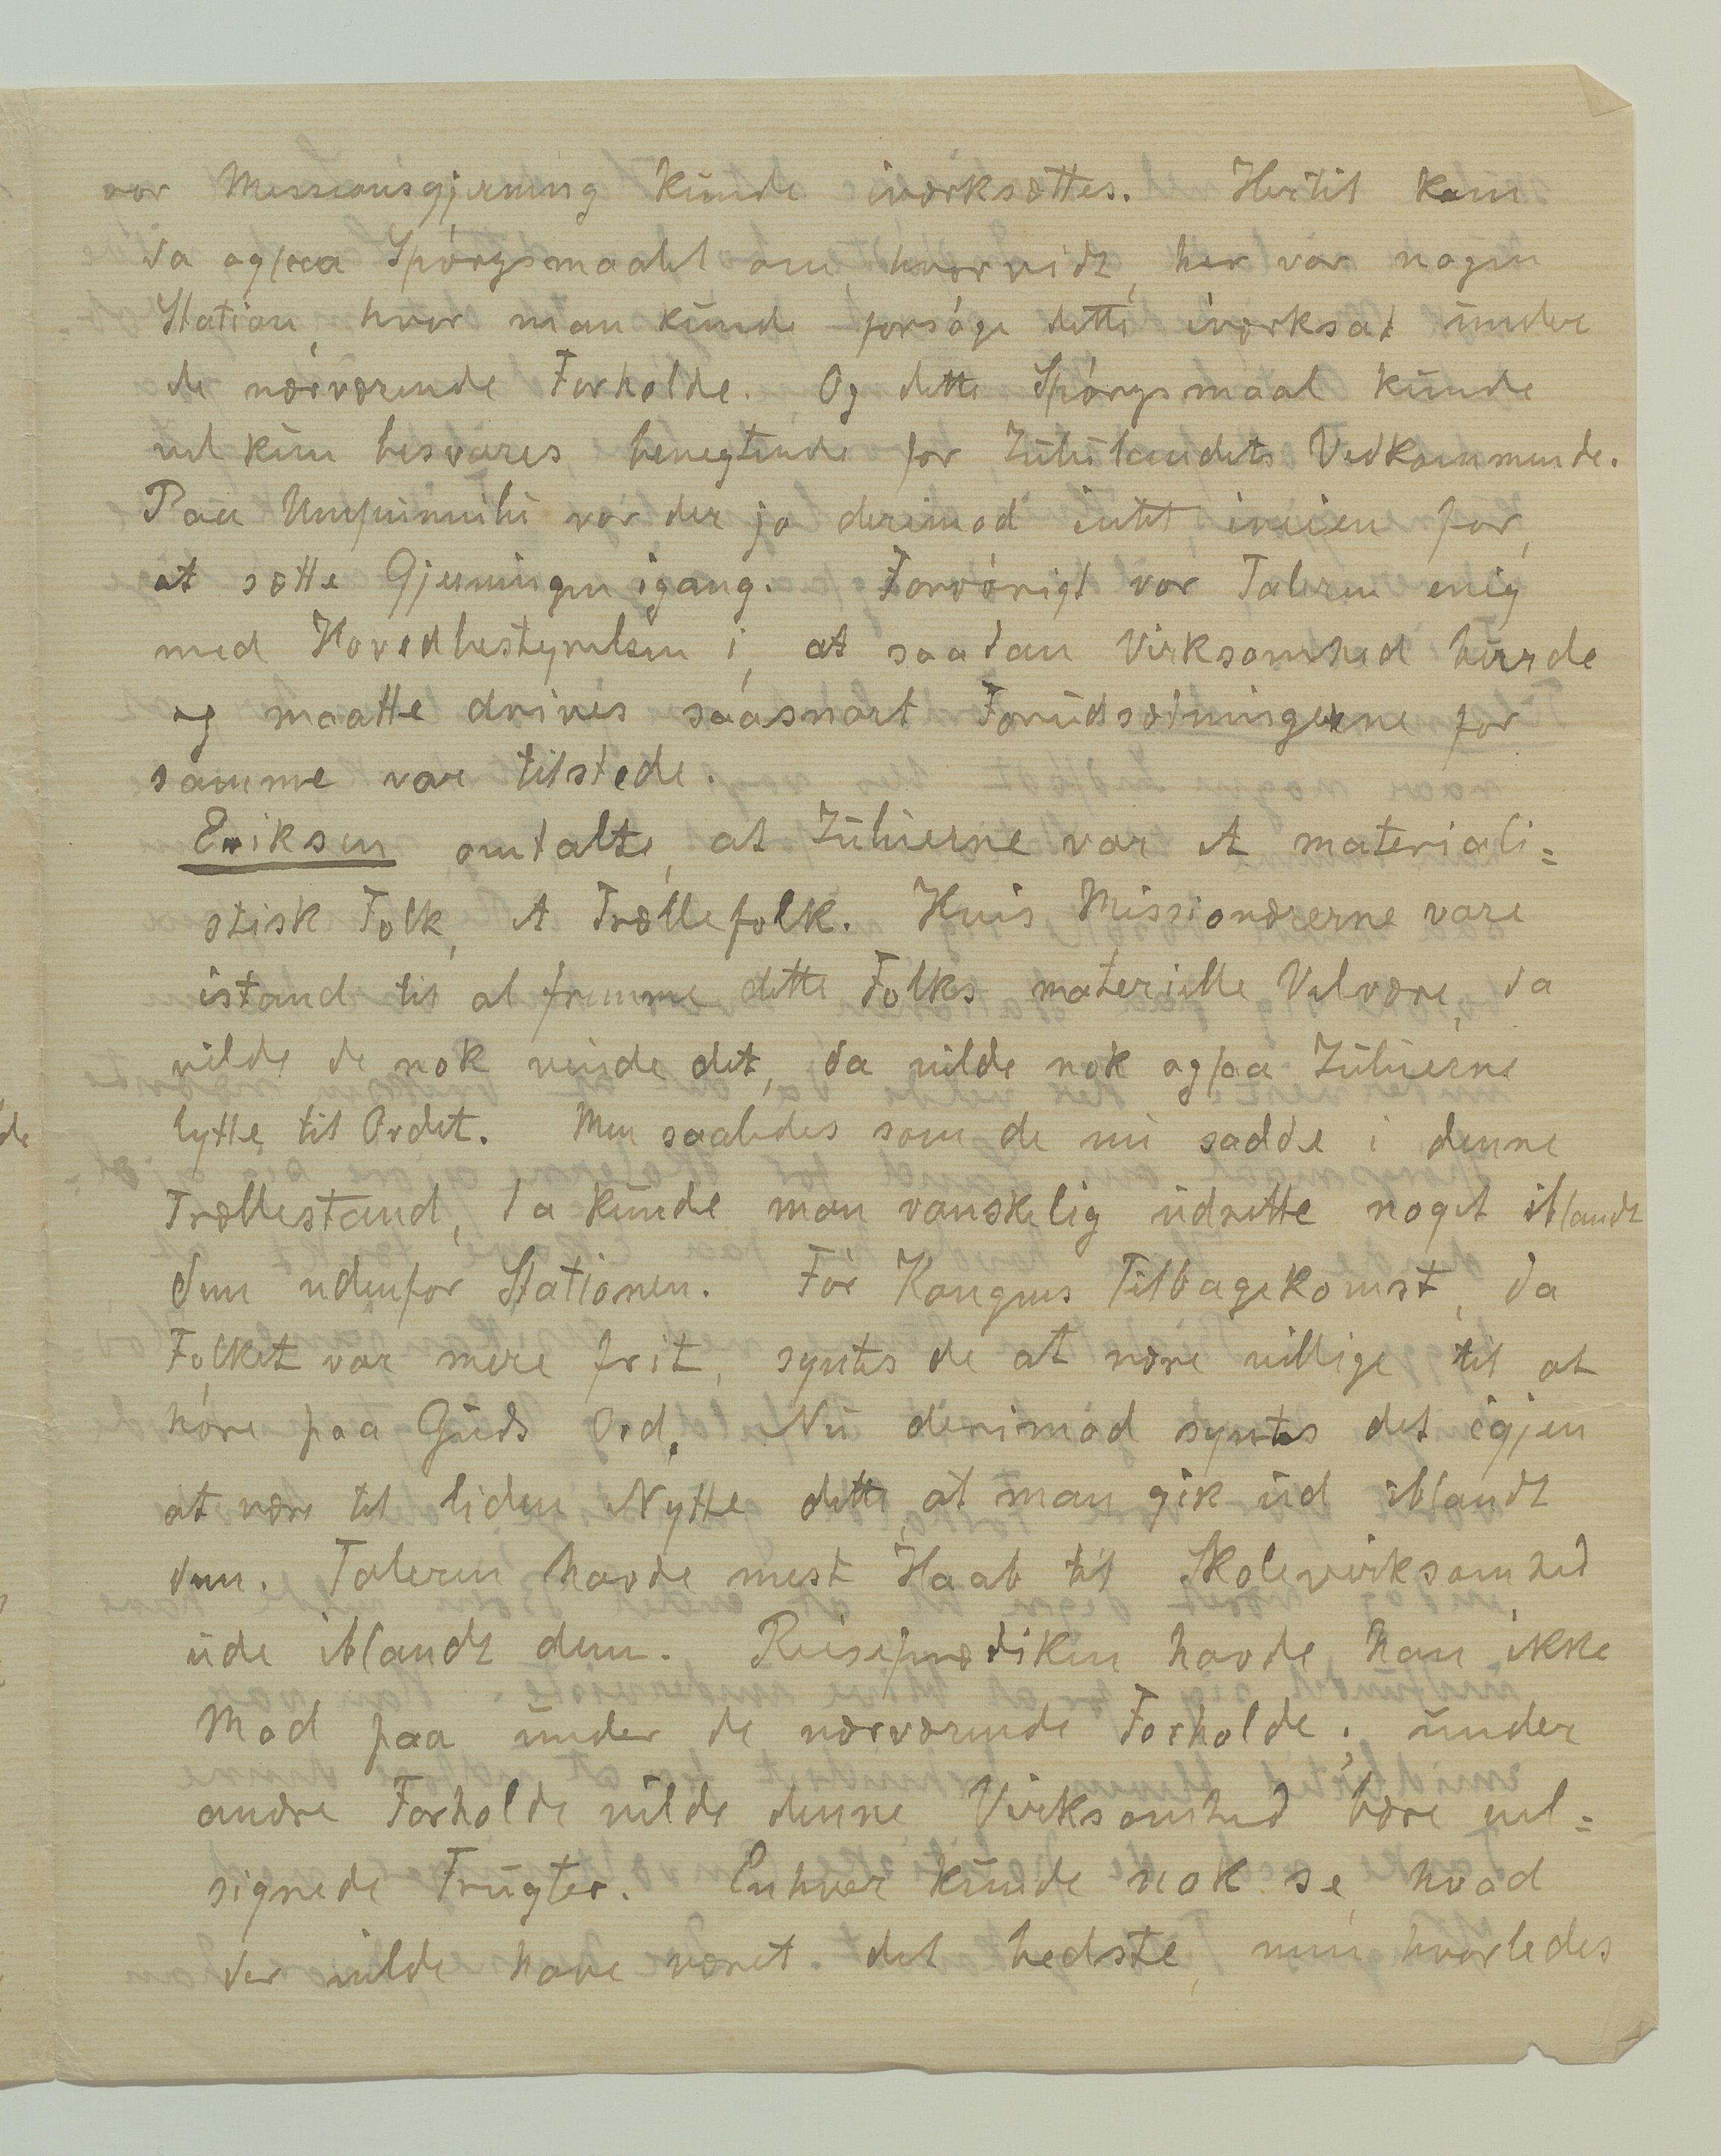 vor Missionsgjerning kunde iværksættes. Hertil kom
da ogsaa Spörgsmaalet om, hvorvidt, her var nogen
Station, hvor man kunde forsöge dette iværksat under
de nærværende Forholde. Og dette Spörgsmaal kunde
vel kun besvares benegtende for Zululandets Vedkommende.
Paa Umpumulu var der jo derimod intet iveien for,
at sætte Gjerningen igang. Forvörigt var Taleren enig
med Hovedbestyrelsen i, at saadan Virksomhed burde
og maatte drives saasnart Forudsætningerne for
samme var tilstede.
Eriksen omtalte, at Zuluerne var et materiali=
stisk Folk, et Trællefolk. Hvis Missionærerne vare
istand til at fremme dette Folks materielle Velvære, da
vilde de nok vinde det, da vilde nok ogsaa Zuluerne
lytte til Ordet. Men saaledes som de nu sadde i denne
Trællestand, da kunde man vanskelig udrette noget iblandt
dem udenfor Stationen. För Kongens Tilbagekomst, da
Folket var mere frit, syntes de at være villige til at
höre paa Guds Ord. Nu derimod syntes det igjen
at være til liden Nytte dette, at man gik ud iblandt
dem. Taleren havde mest Haab til Skolevirksomhed
ude iblandt dem. Reiseprædiken havde han ikke
Mod paa under de nærværende Forholde; under
andre Forholde vilde denne Virksomhed bære vel=
signede Frugter. Enhver kunde nok se, hvad
der vilde have været det bedste, men hvorledes
de